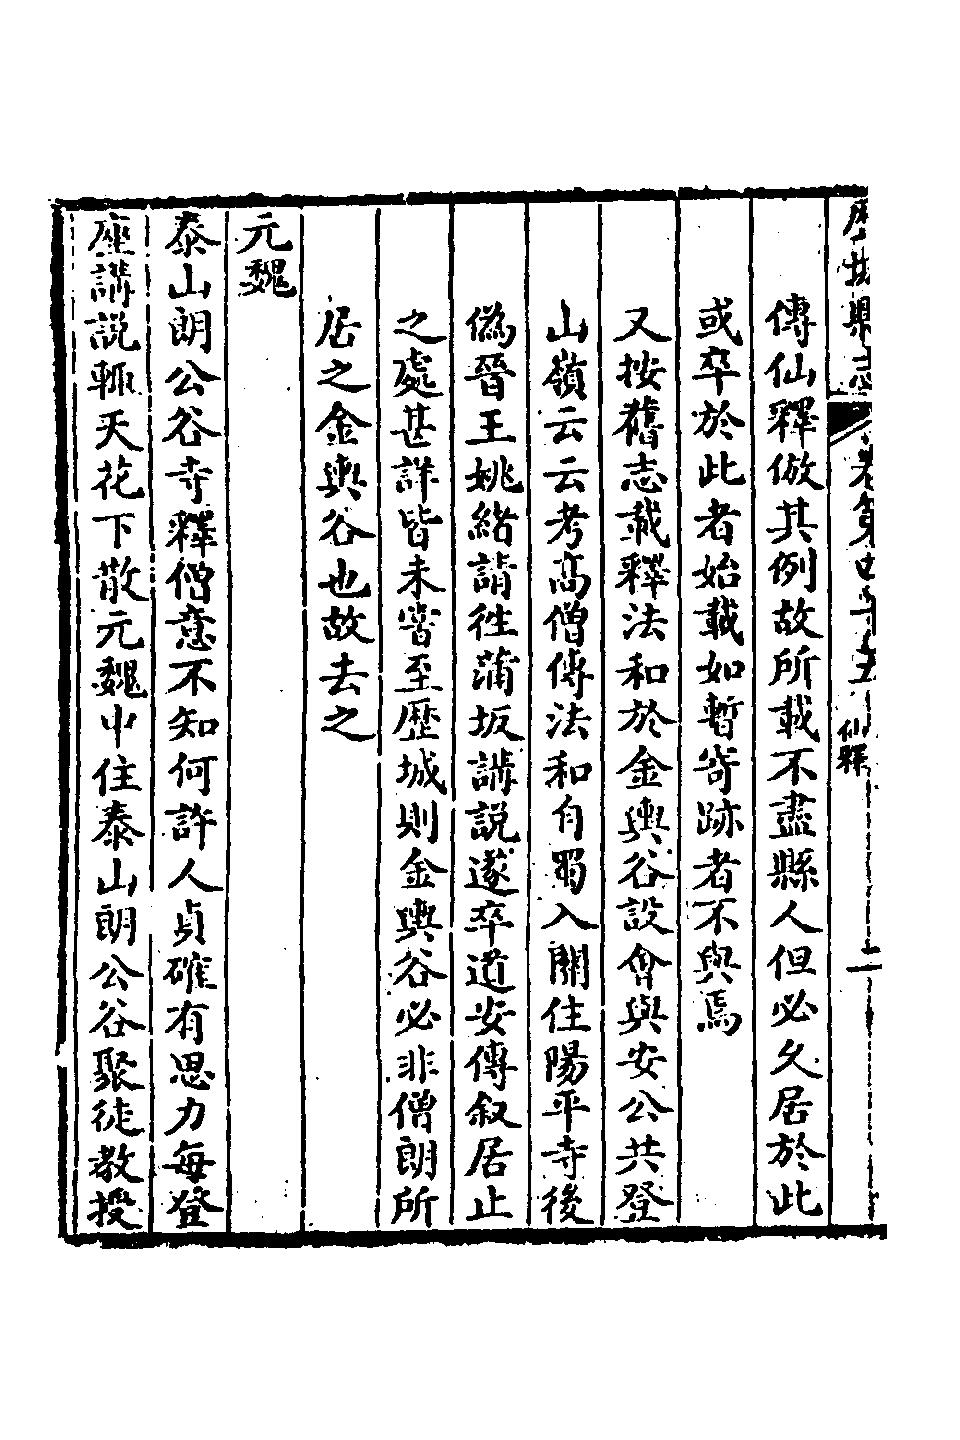 歷城縣志 卷第四十五 仙釋 二
傳仙釋倣其例故所載不盡縣人但必久居於此
或卒於此者始載如暫寄跡者不與焉
又按舊志載釋法和於金輿谷設會與安公共登
山嶺云云考高僧傳法和自蜀入關住陽平寺後
偽晉王姚緒請徃蒲坂講説遂卒道安傳叙居止
之處甚詳皆未甞至歷城則金輿谷必非僧朗所
居之金輿谷也故去之
元魏
泰山朗公谷寺釋僧意不知何許人貞確有思力每登
座講説輒天花下散元魏中住泰山朗公谷聚徒教授